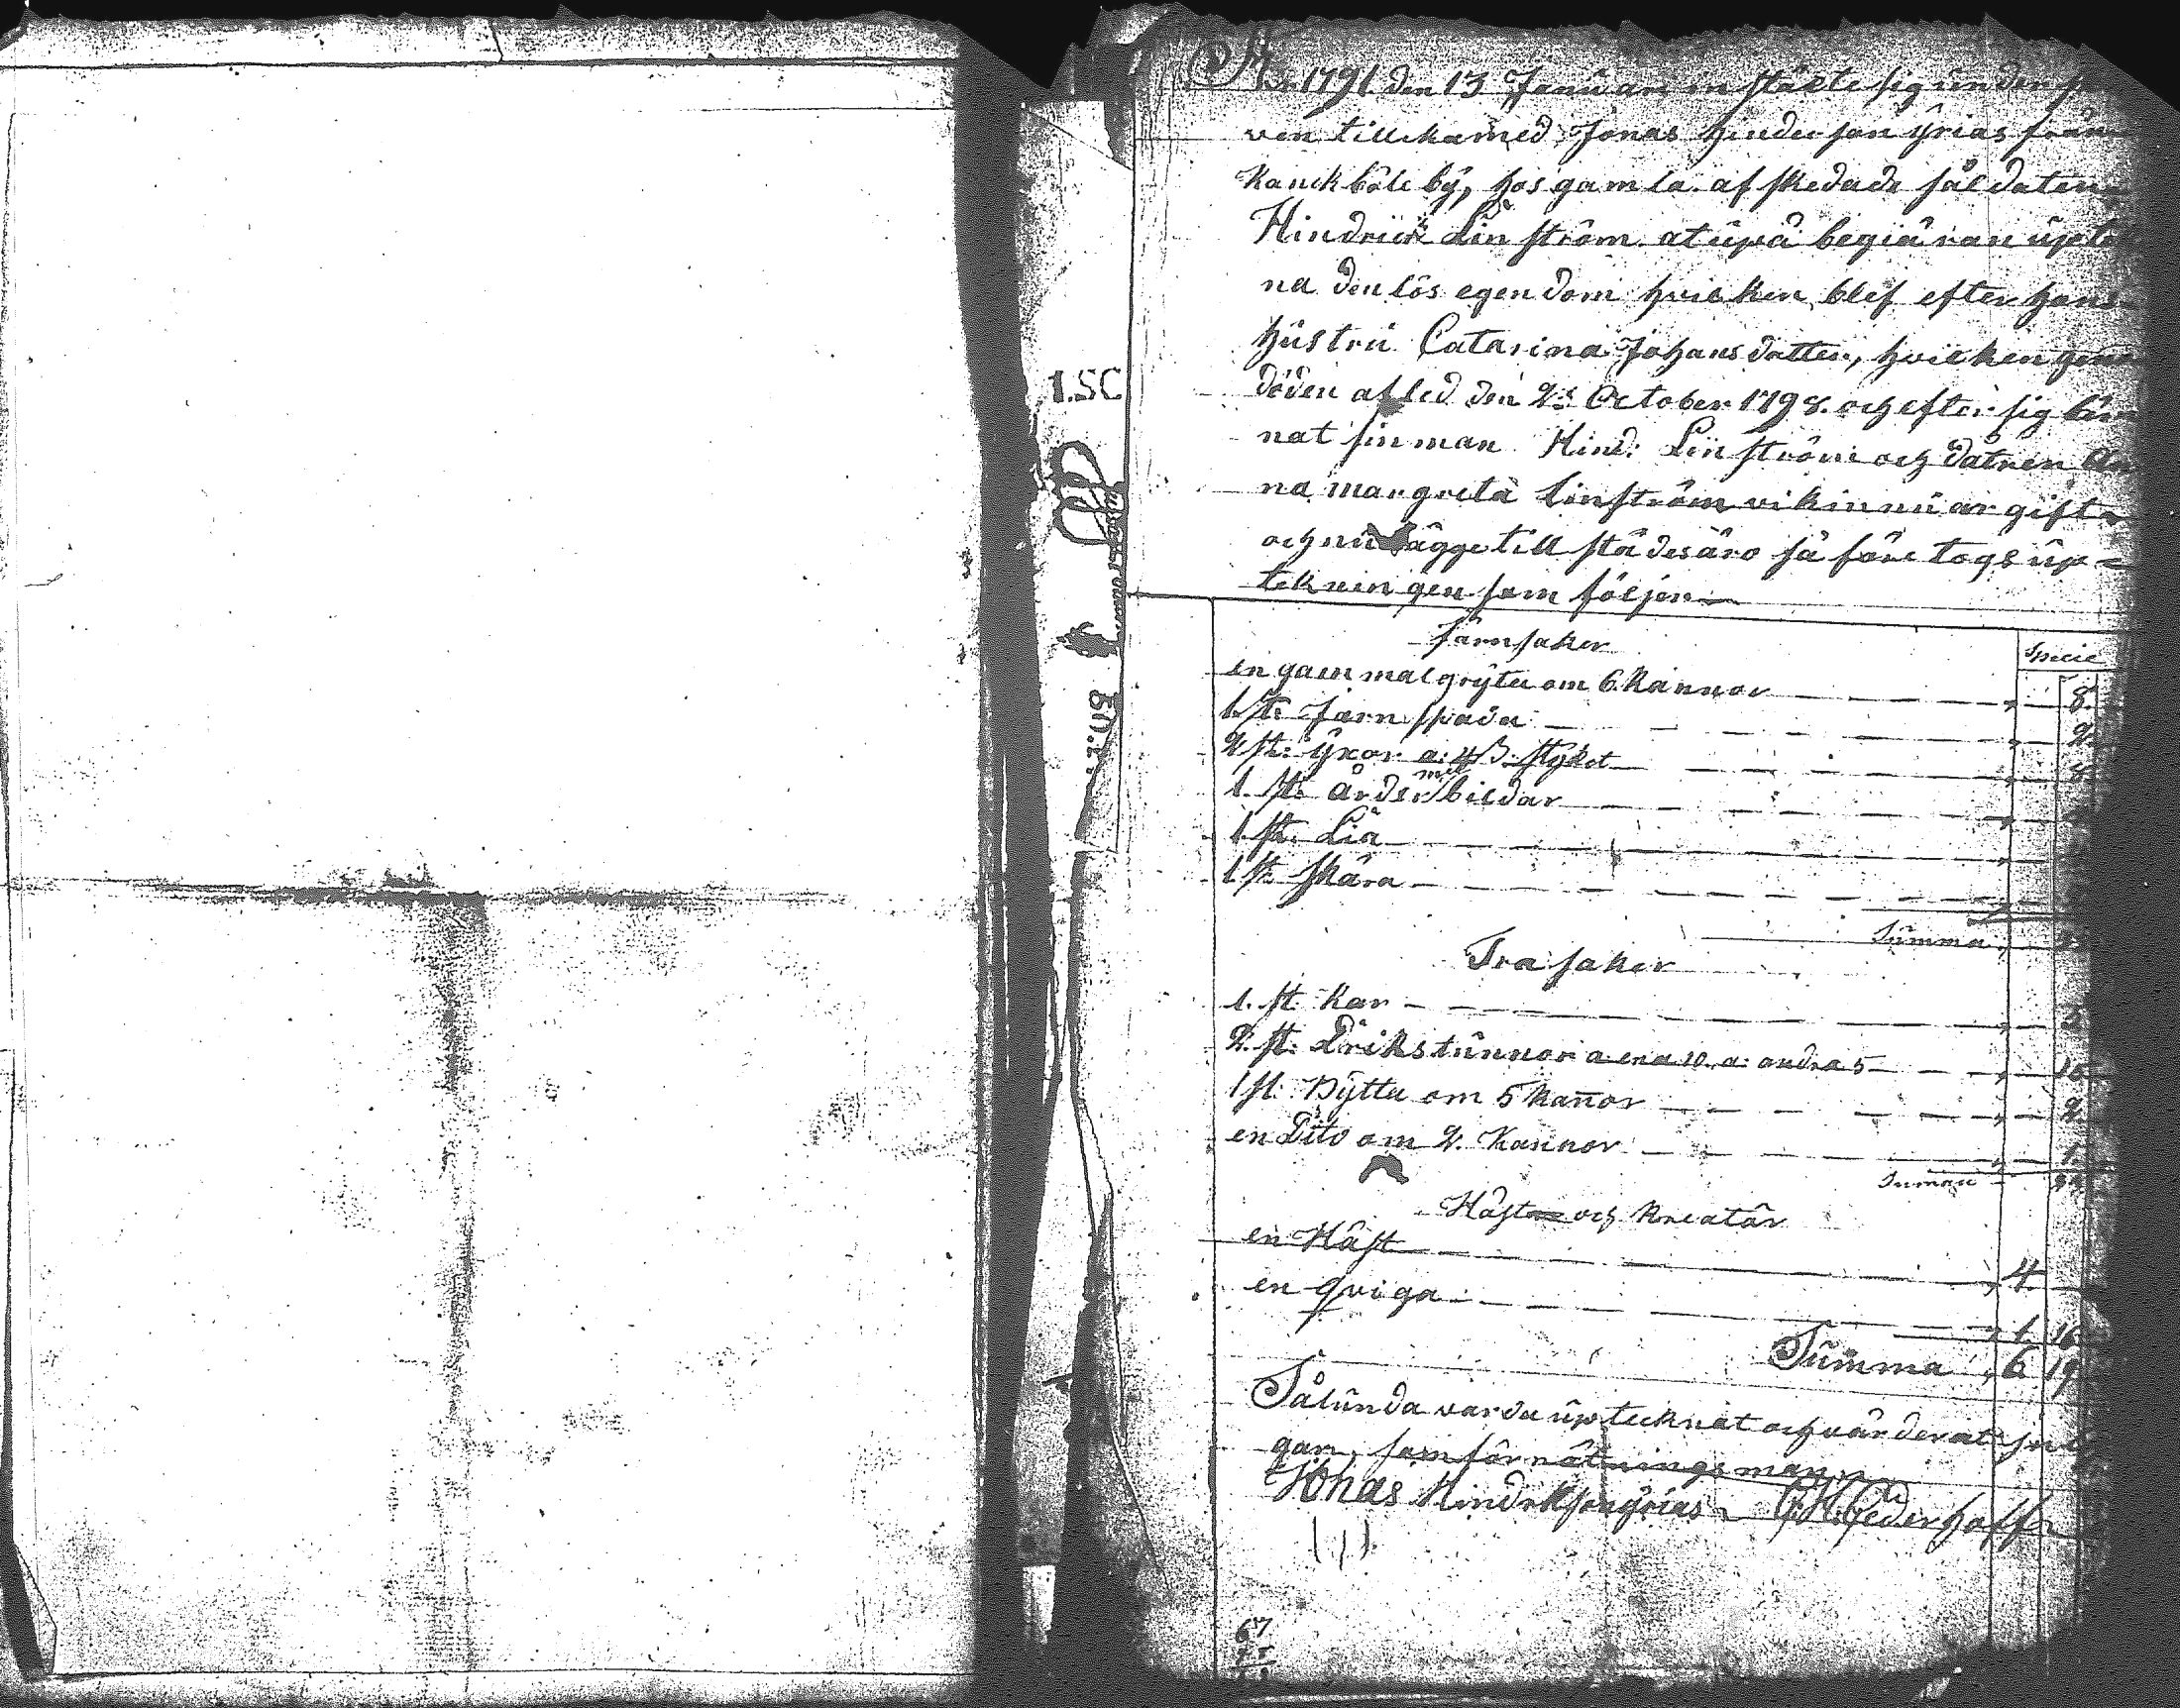 År 1791 den 13 Januari instälte sig under
ven tillika med Jonas Hinderson ÿrias från
Kauckböle bÿ, hos gamla afskedade såldaten
Hindrick Linström at upå begiäran up
na den lös egendom hvilken blef efter hans
hustru Catarina Johans dotter, hvilken
döden afled den 2: October 1798. och efter sig
nat sin man Hind: Linström och dåtren An
na margreta Linström vikin nu ar gift
och nu bägge till städes äro så före togs up=
tekningen som följer
Järnsaker
Specie
en gammal grÿta om 6. Kannor 8.
1. st. Järn spada 2.
2 st: ÿxor a: 4 ß. stÿket 8
1. st: årder med bildar
1. st. Lia
1 st. skära
Summa
Trä saker
1. st. Kar
2. st. Drikstunnor a ena 10. a: andra 5 15
1 st. Bÿtta om 5 kannor 2
en Dito om 2. Kannor 1.
Summa
Häst och kreatür
en Häst 4
en qviga 1 16
Summa 6 19
Sålunda varda uptecknat och värderat
gar, som förrätningsman
Jonas Hindrkson ÿrias G.H. Cederhoff
67